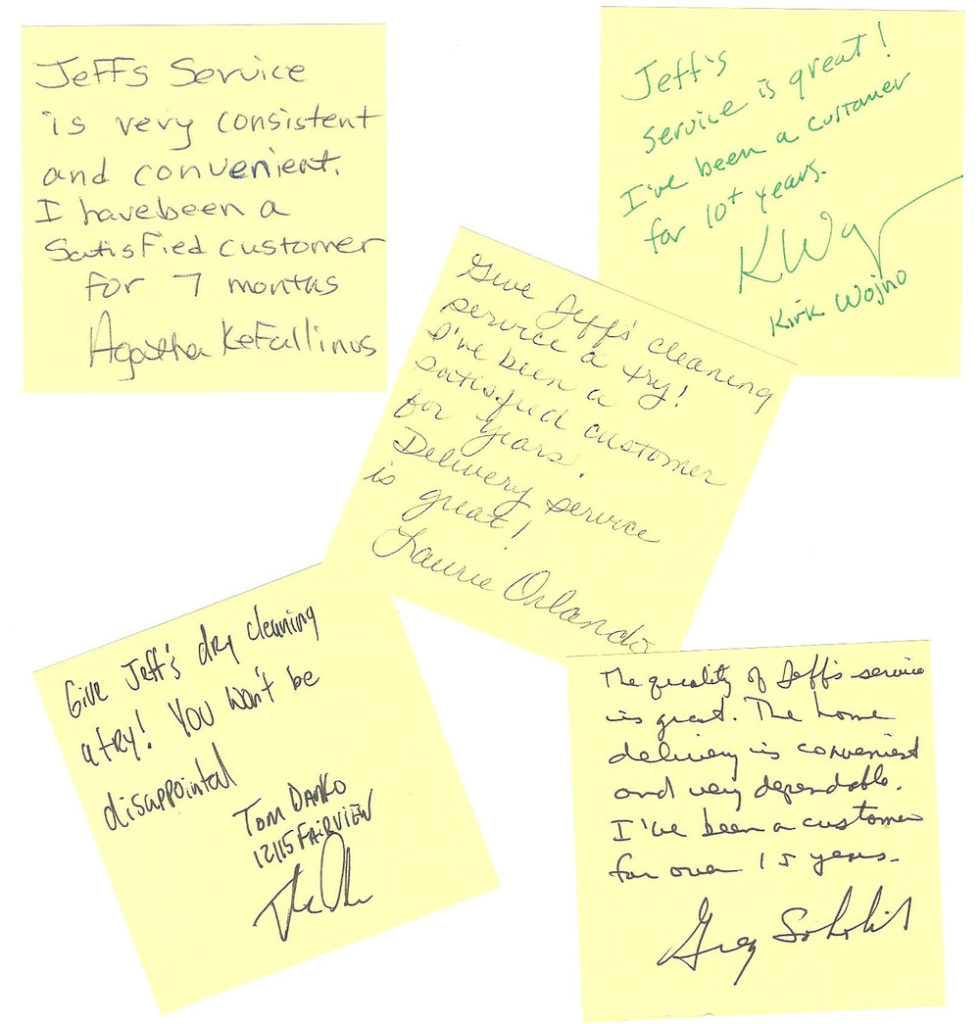 Jeffs Service
is very consistent
and convenient.
I have been a
Satisfied customer
for 7 months
Agatha Kefallinus
Jeff's
service is great!
I've been a customer
for 10+ years.
Kirk Wojno
Give Jeff's cleaning
service a try!
I've been a
satisfied customer
for years.
Delivery service
is great!
Laurie Orlando
Give Jeff's dry cleaning
a try! You won't be
disappointed
Tom Danko
12115 Fairview
The quality of Jeff's service
is great. The home
delivery is convenient
and very dependable.
I've been a customer
for over 15 years.
Greg